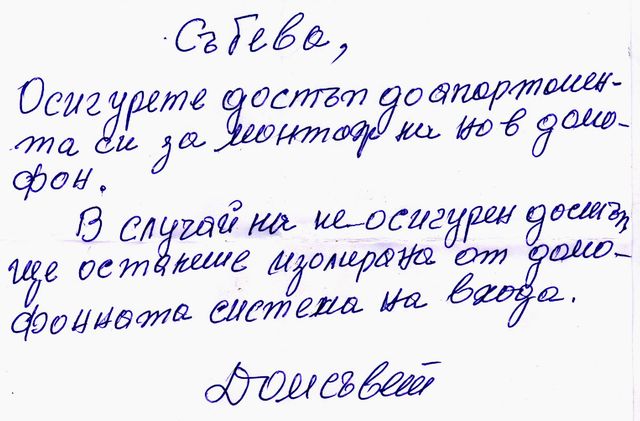 Събева,
Осигурете достъп до апартамен-
та си за монтаж на нов домо-
фон.
В случай на не-осигурен достъп
ще останете изолирана от домо-
фонната система на входа.
Домсъвет